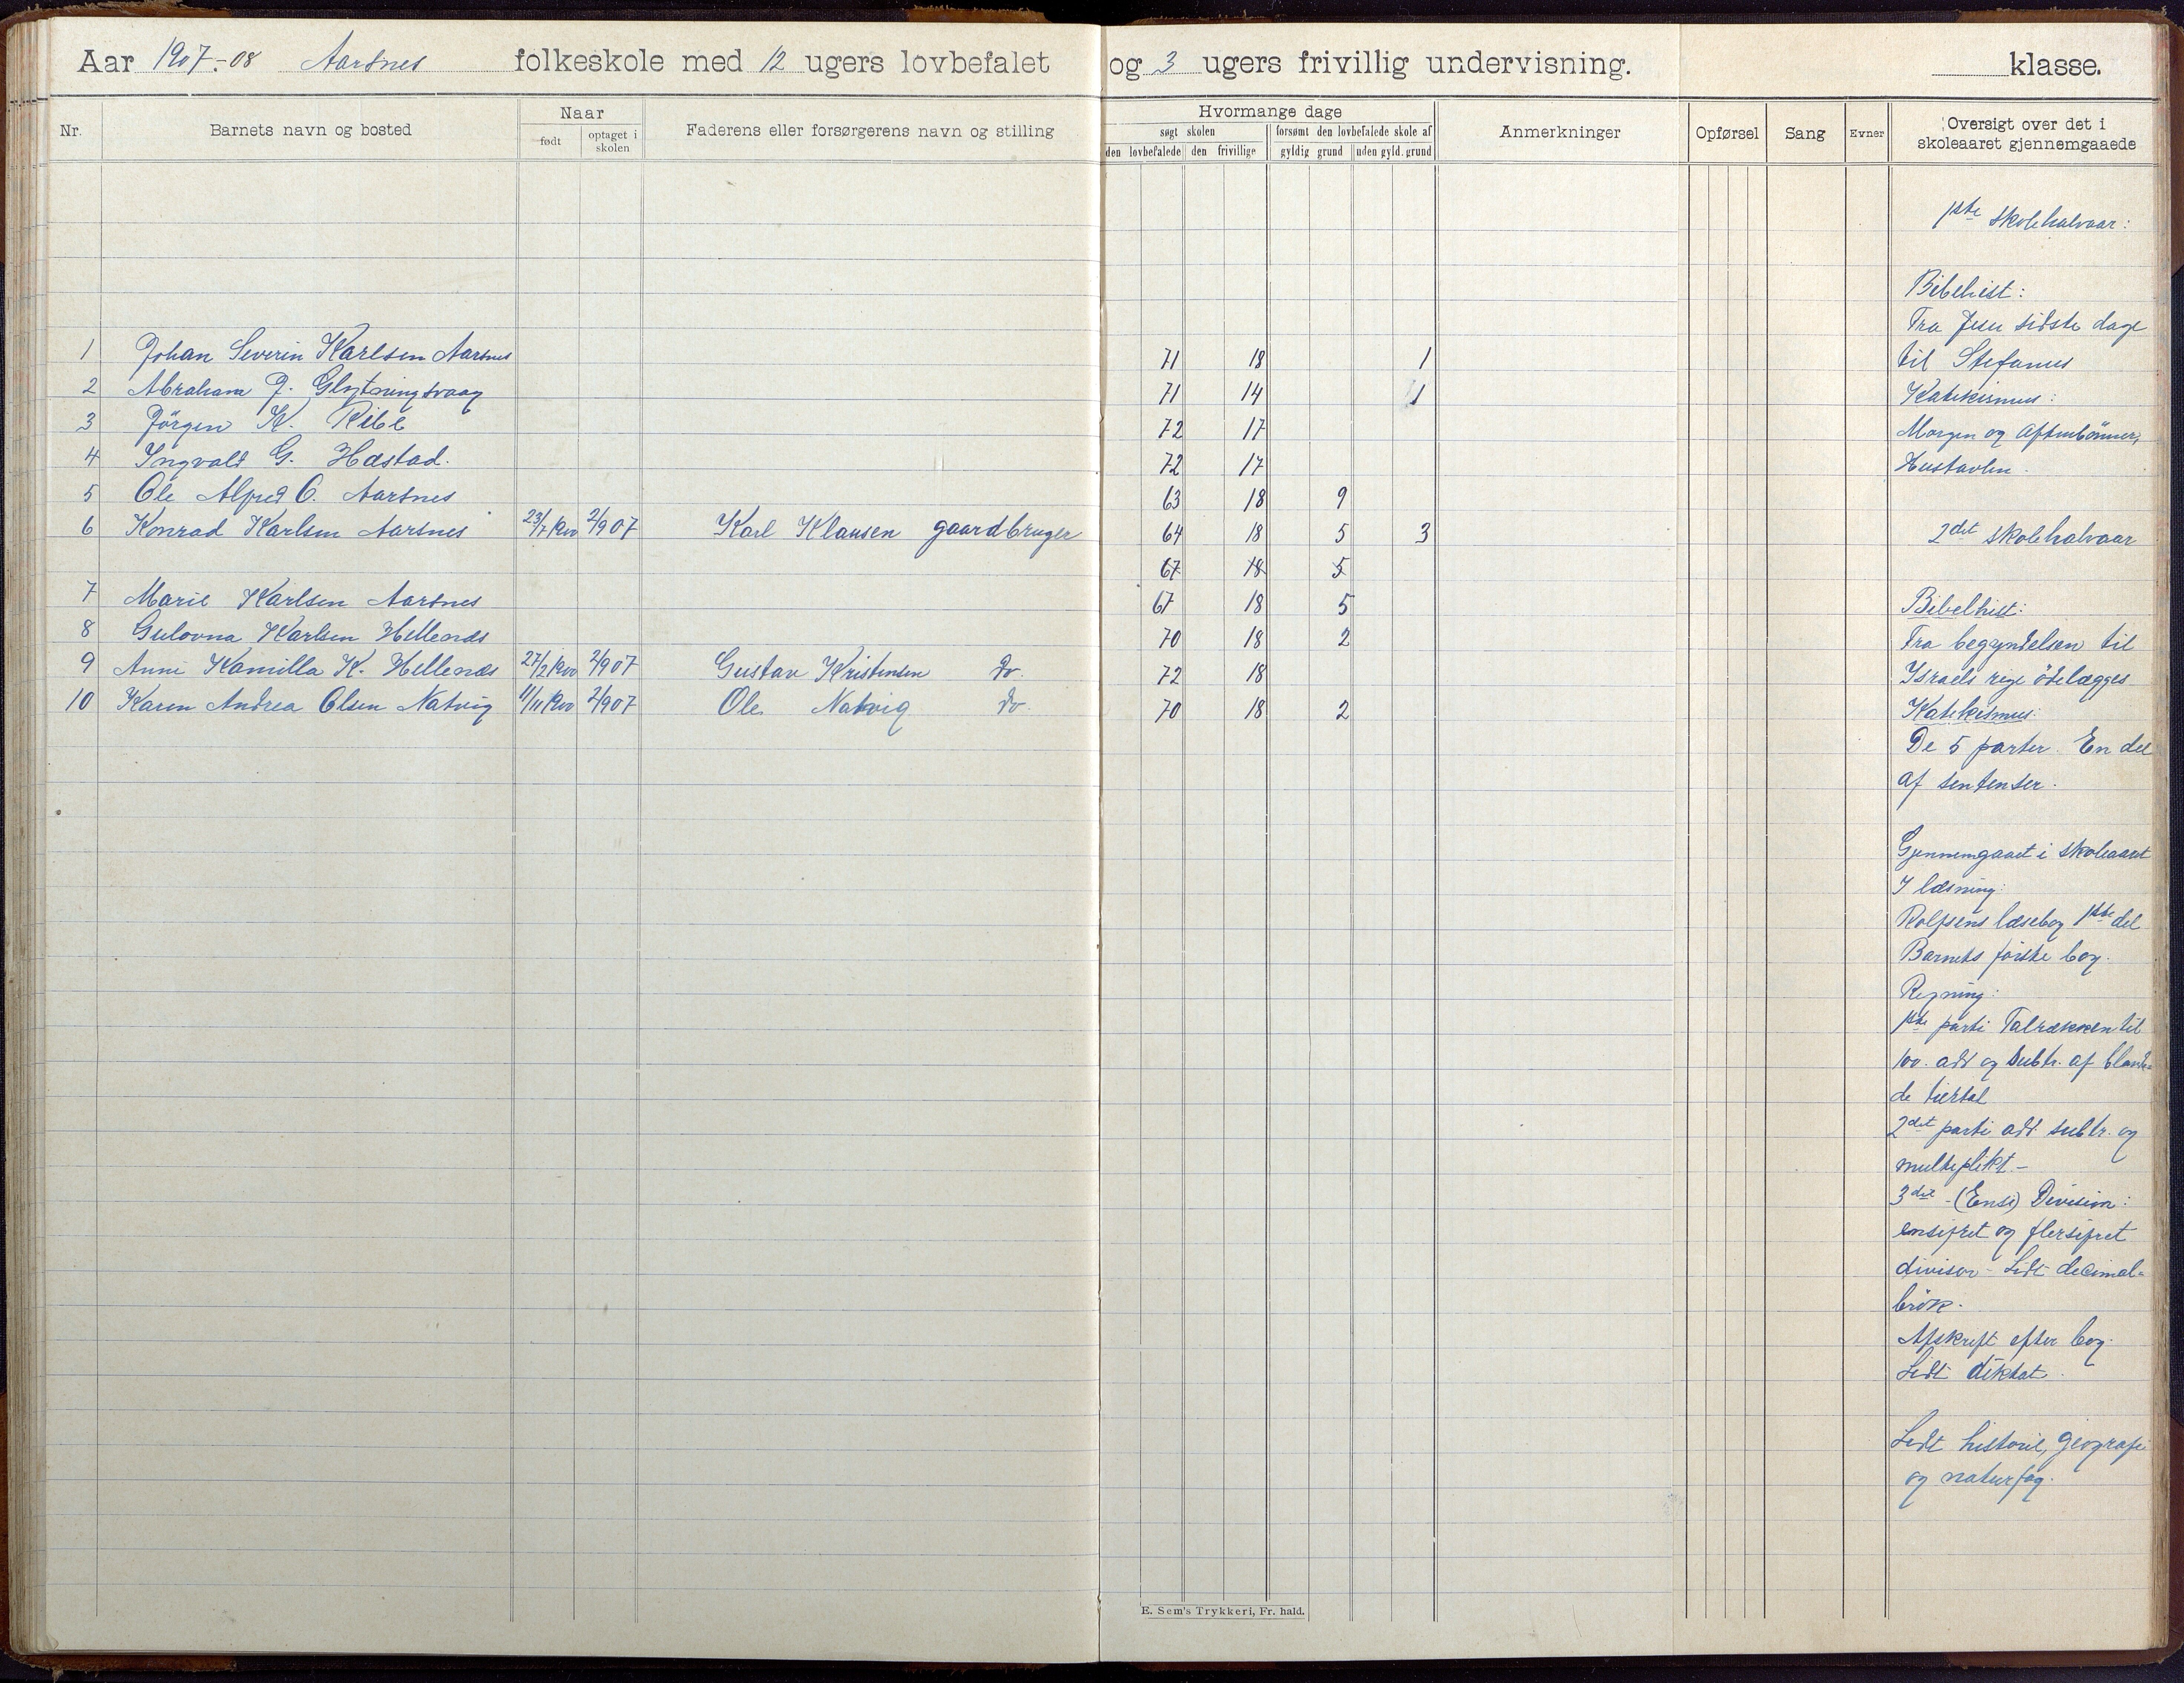 Aar 1907.-08 Aarsnes folkeskole med 12 ugers lovbefalet og 3 ugers frivillig undervisning. klasse.
Nr. Barnets navn og bosted Naar født optaget i skolen Faderens eller forsørgerens navn og stilling
Hvormange dage søgt skolen den lovbefalede den frivillige forsømt den lovbefalede skole af gyldig grund uden gyld. grund Anmerkninger Opførsel Sang Evner Oversigt over det i skoleaaret gjennemgaaede
1 Johan Severin Karlsen Aarsnes 71 18 1
2 Abraham J. Glytningsvaag 71 14 1
3 Jörgen K. Kibe 72 17
4 Ingvald G. Hæstad. 72 17
5 Ole Alfred O. Aarsnes 63 18 9
6 Konrad Karlsen Aarsnes 23/7 1900 2/9 07 Karl Klausen gaardbruger 64 18 5 3
67 18 5
7 Marie Karlsen Aarsnes 67 18 5
8 Gulovna Karlsen Hellenæs 70 18 2
9 Anne Kamilla K. Hellenæs 27/2 1900 2/9 07 Gustav Kristensen Do. 72 18
10 Karen Andrea Olsen Natvig 11/11 1900 2/9 07 Ole Natvig Do. 70 18 2
1ste skolehalvaar:
Bibelhist:
Fra Jesu sidste dage
til Stefanus
Katekismus:
Morgen og Aftenbönner,
Hustavlen.
2det skolehalvaar
Bibelhist:
Fra begyndelsen til
Israels rige ödelægges
Katekismus:
De 5 parter. En del
af sentenser.
Gjennemgaaet i skoleaaret
I læsning:
Rolfsens læsebog 1ste del
Barnets förste bog.
Regning:
1ste parti Talrækken til
100. add og Subtr. af blande-
de tiertal
2det parti add. subtr. og
multiplikt -
3die - (Ens) Division:
ensifret og flersifret
divisor - Lidt decimal-
brök.
Afskrift efter bog.
Lidt diktat.
Lidt historie, geografi
og naturfag.
E. Sem's Trykkeri, Fr. hald.